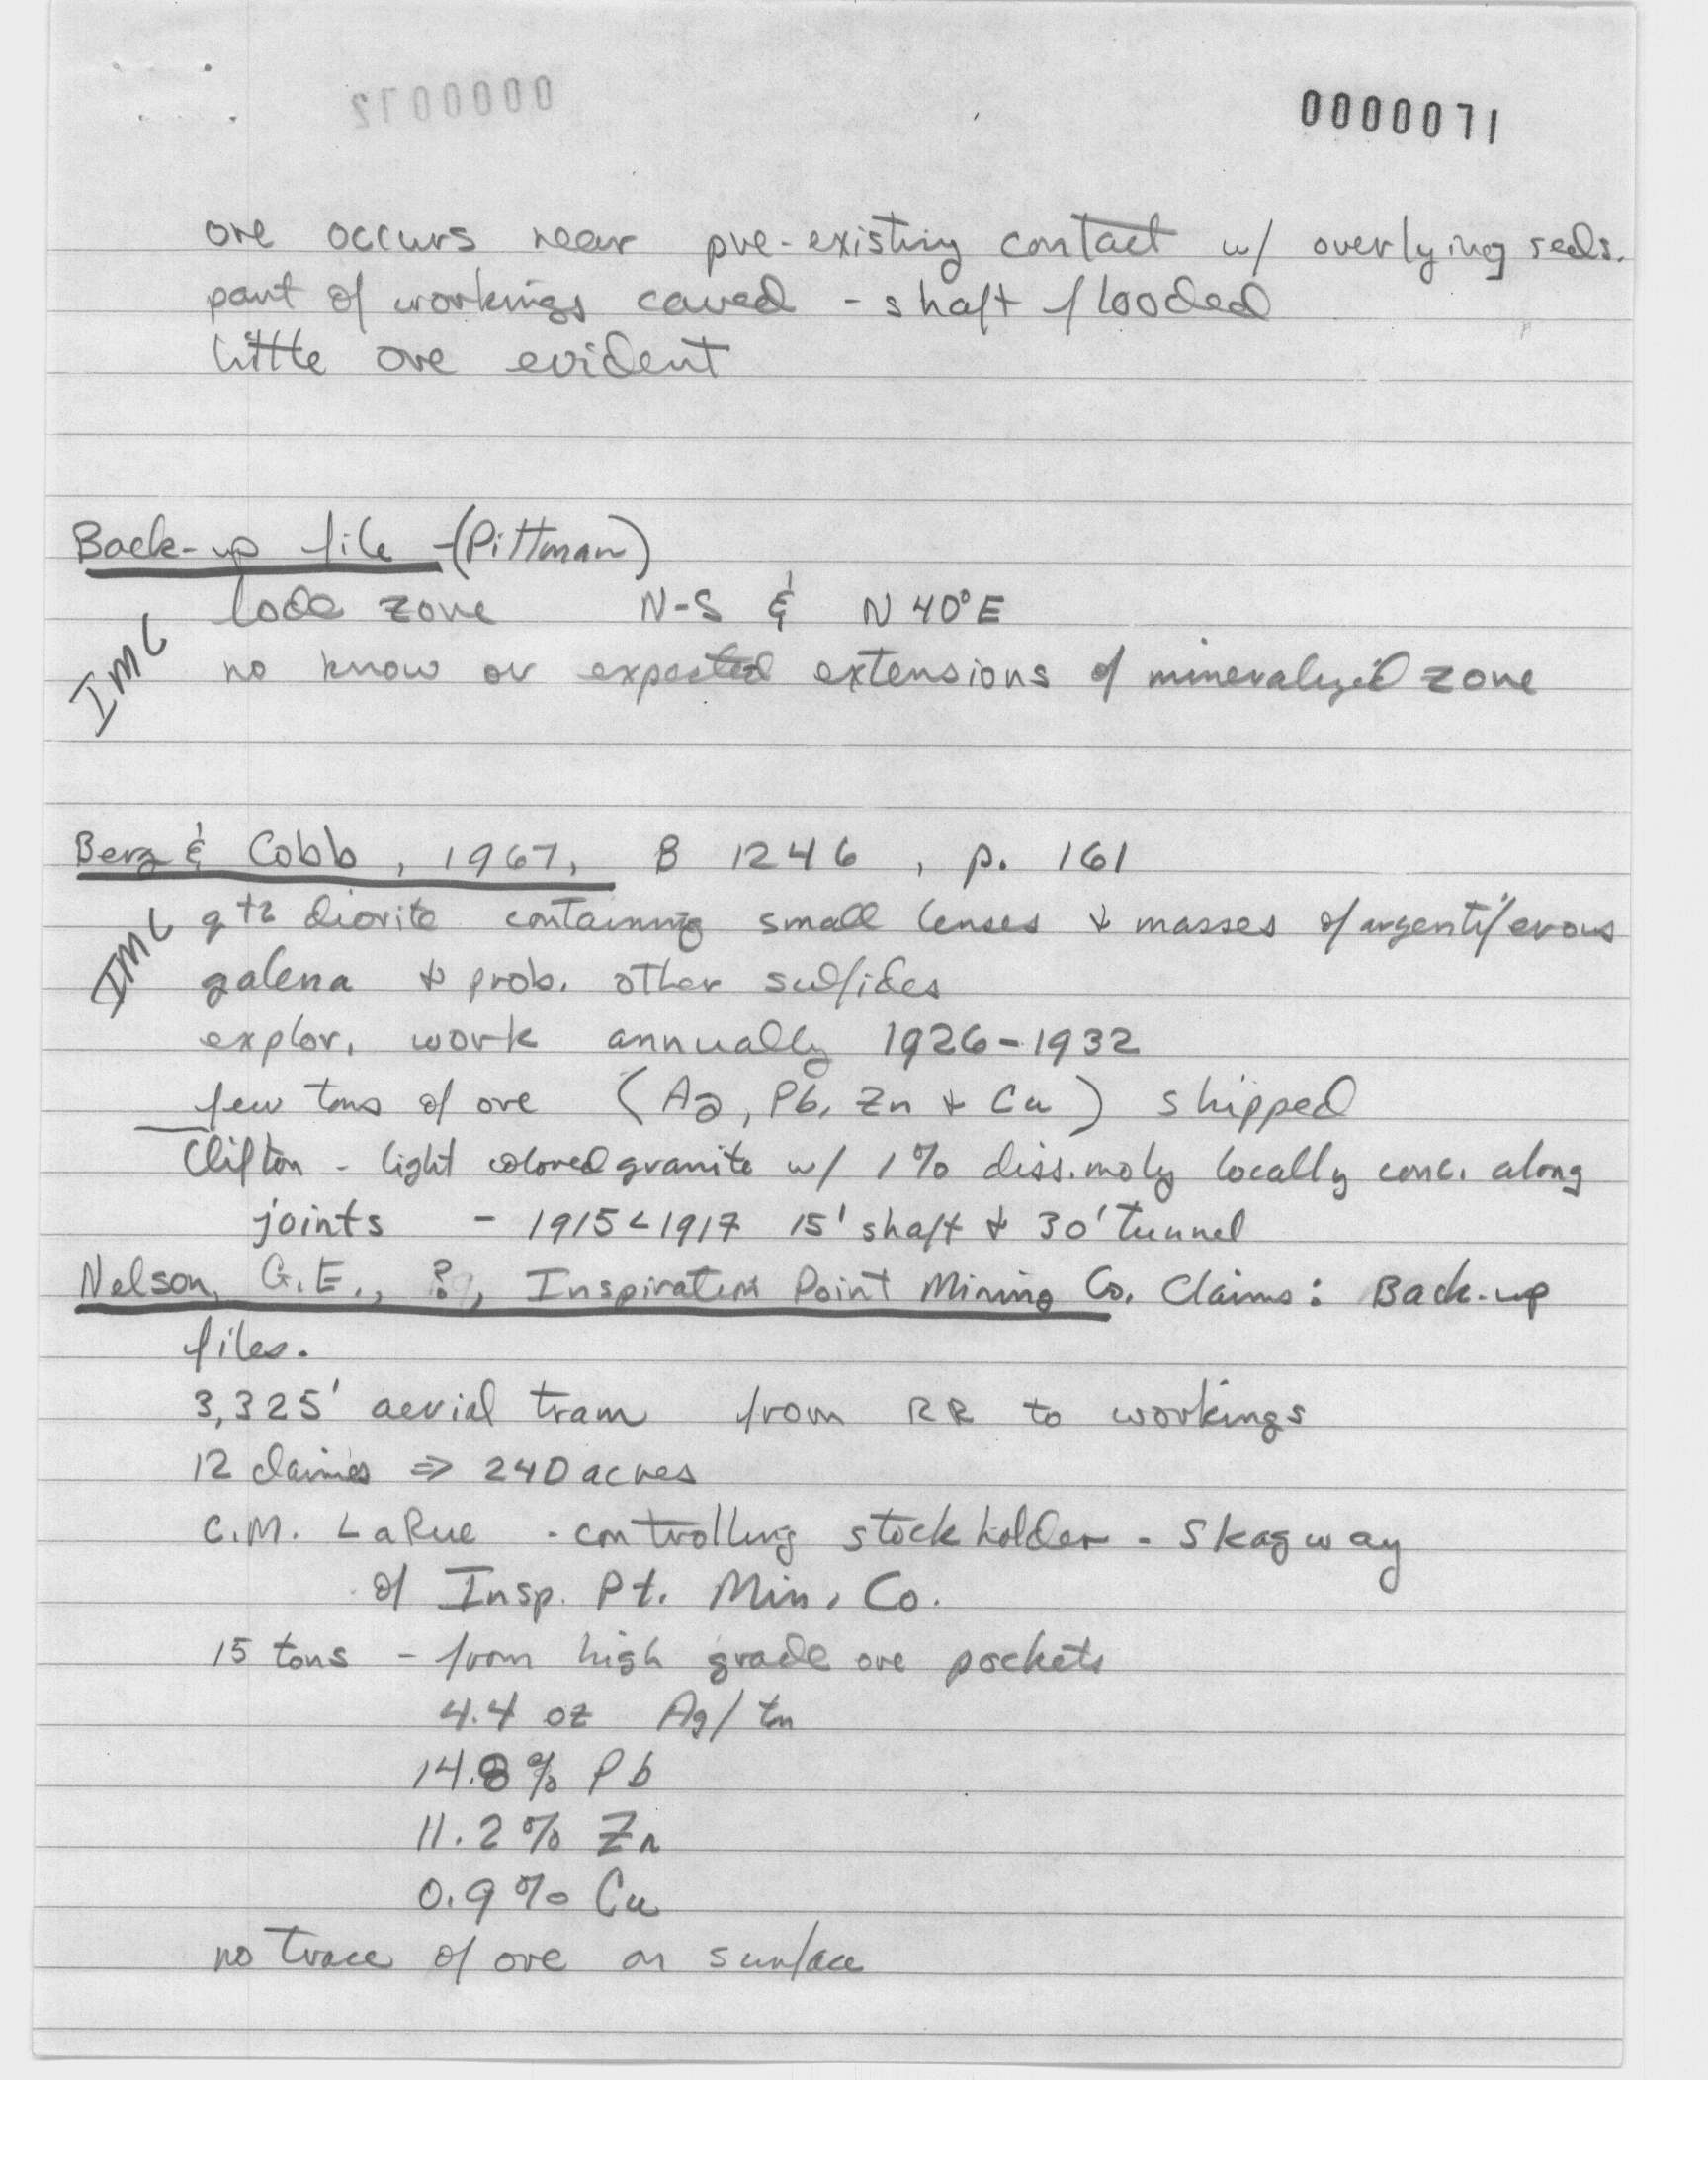 0000072
0000071
ore occurs near pre-existing contact w/ overlying seds.
part of workings caved - shaft flooded
little ore evident
Back-up file - (Pittman)
lode zone N-S & N 40° E
IMC
no know or expected extensions of mineralized zone
Berg & Cobb, 1967, B 1246, p. 161
IMC
qtz diorite containing small lenses & masses of argentiferous
galena & prob. other sulfides
explor. work annually 1926-1932
few tons of ore (Ag, Pb, Zn & Cu) shipped
Clifton - light colored granite w/ 1% diss. moly locally conc. along
joints - 1915 < 1917 15' shaft & 30' tunnel
Nelson, G.E., ?, Inspiration Point Mining Co. Claims: Back-up
files.
3,325' aerial tram from RR to workings
12 claims => 240 acres
C.M. LaRue - controlling stockholder - Skagway
of Insp. Pt. Min. Co.
15 tons - from high grade ore pockets
4.4 oz Ag/tn
14.8% Pb
11.2% Zn
0.9% Cu
no trace of ore on surface